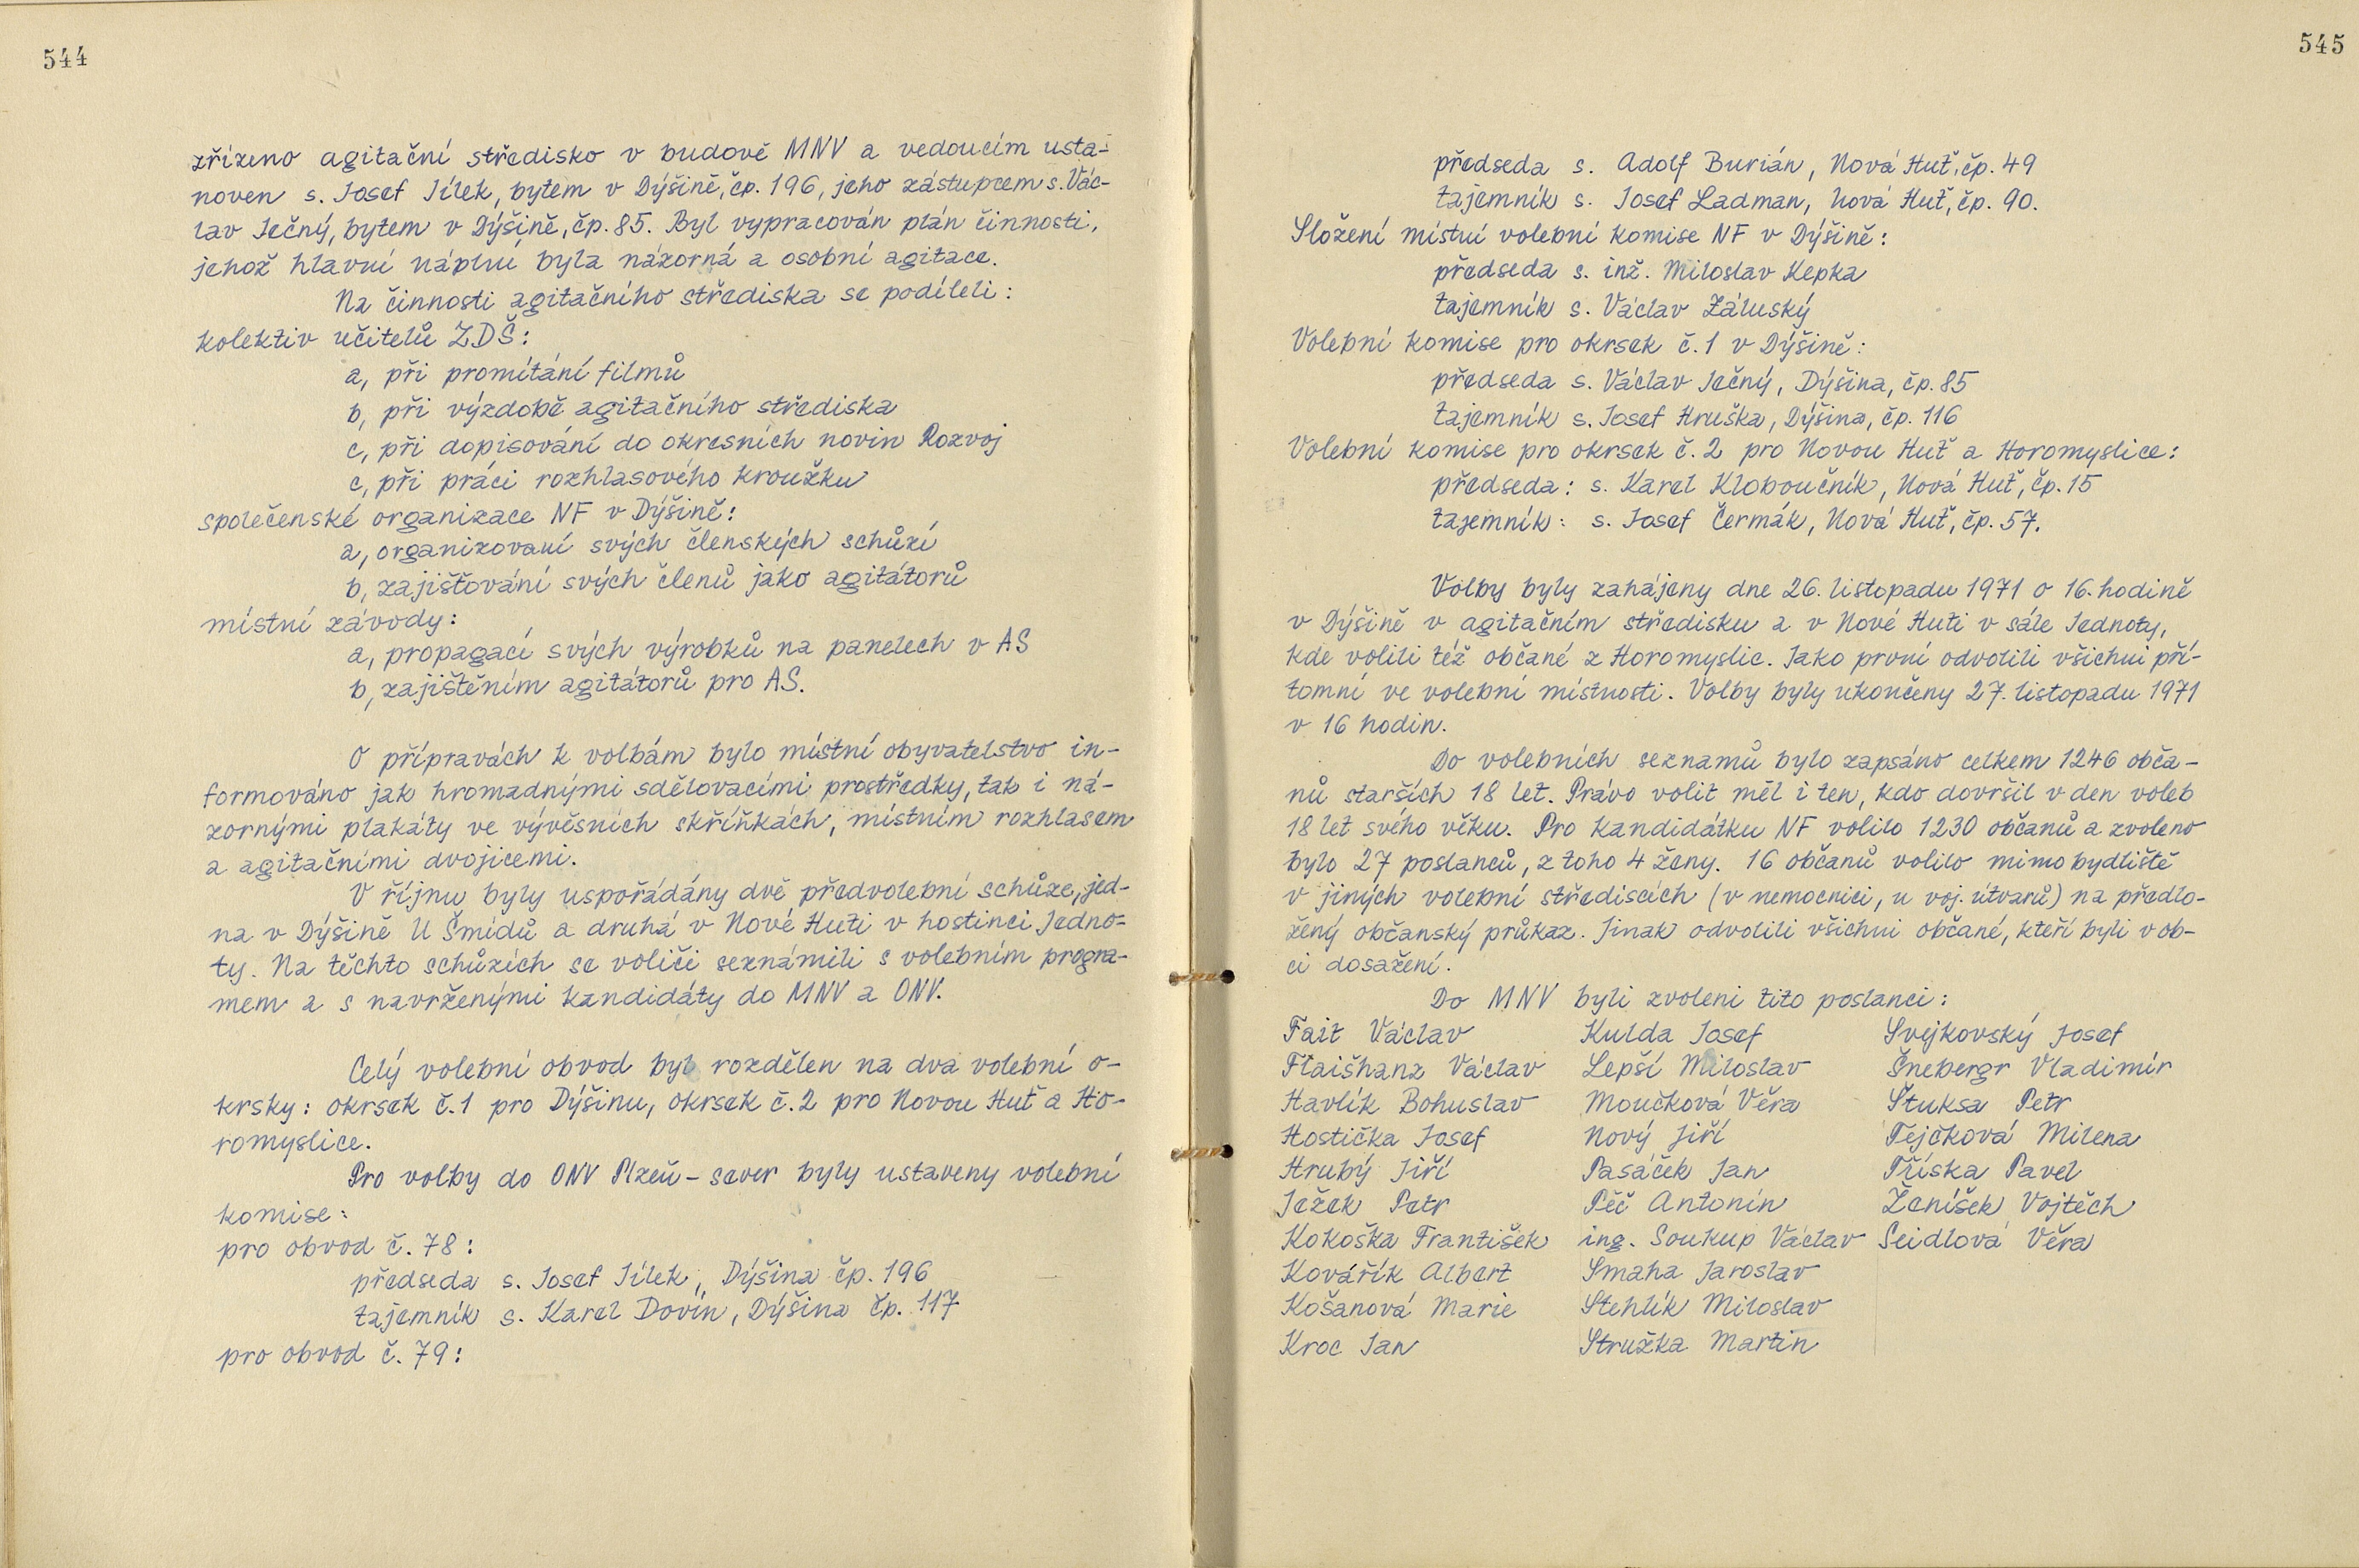 544
zřízeno agitační středisko v budově MNV a vedoucím usta-
noven s. Josef Jílek, bytem v Dýšině, čp. 196, jeho zástupcem s. Vác-
lav Ječný, bytem v Dýšině, čp. 85. Byl vypracován plán činnosti,
jehož hlavní náplní byla názorná a osobní agitace.
Na činnosti agitačního střediska se podíleli:
kolektiv učitelů ZDŠ:
a, při promítání filmů
b, při výzdobě agitačního střediska
c, při dopisování do okresních novin Rozvoj
c, při práci rozhlasového kroužku
společenské organizace NF v Dýšině:
a, organizovaní svých členských schůzí
b, zajišťování svých členů jako agitátorů
místní závody:
a, propagací svých výrobků na panelech v AS
b, zajištěním agitátorů pro AS.
O přípravách k volbám bylo místní obyvatelstvo in-
formováno jak hromadnými sdělovacími prostředky, tak i ná-
zornými plakáty ve vývěsních skříňkách, místním rozhlasem
a agitačními dvojicemi.
V říjnu byly uspořádány dvě předvolební schůze, jed-
na v Dýšině U Šmídů a druhá v Nové Huti v hostinci Jedno-
ty. Na těchto schůzích se voliči seznámili s volebním progra-
mem a s navrženými kandidáty do MNV a ONV.
Celý volební obvod byl rozdělen na dva volební o-
krsky: okrsek č.1 pro Dýšinu, okrsek č.2 pro Novou Huť a Ho-
romyslice.
Pro volby do ONV Plzeň - sever byly ustaveny volební
komise:
pro obvod č. 78:
předseda s. Josef Jílek, Dýšina čp. 196
tajemník s. Karel Dovín, Dýšina čp. 117
pro obvod č. 79:
545
předseda s. Adolf Burián, Nová Huť, čp. 49
tajemník s. Josef Ladman, Nová Huť, čp. 90.
Složení místní volební komise NF v Dýšině:
předseda s. inž. Miloslav Kepka
tajemník s. Václav Záluský
Volební komise pro okrsek č.1 v Dýšině:
předseda s. Václav Ječný, Dýšina, čp. 85
tajemník s. Josef Hruška, Dýšina, čp. 116
Volební komise pro okrsek č.2 pro Novou Huť a Horomyslice:
předseda: s. Karel Kloboučník, Nová Huť, čp. 15
tajemník: s. Josef Čermák, Nová Huť, čp. 57.
Volby byly zahájeny dne 26. listopadu 1971 o 16. hodině
v Dýšině v agitačním středisku a v Nové Huti v sále Jednoty,
kde volili též občané z Horomyslic. Jako první odvolili všichni pří-
tomní ve volební místnosti. Volby byly ukončeny 27. listopadu 1971
v 16 hodin.
Do volebních seznamů bylo zapsáno celkem 1246 obča-
nů starších 18 let. Právo volit měl i ten, kdo dovršil v den voleb
18 let svého věku. Pro kandidátku NF volilo 1230 občanů a zvoleno
bylo 27 poslanců, z toho 4 ženy. 16 občanů volilo mimo bydliště
v jiných volební střediscích (v nemocnici, u voj. útvarů) na předlo-
žený občanský průkaz. Jinak odvolili všichni občané, kteří byli v ob-
ci dosažení.
Do MNV byli zvoleni tito poslanci:
Fait Václav Kulda Josef Svejkovský Josef
Flaišhanz Václav Lepší Miloslav Šnebergr Vladimír
Havlík Bohuslav Moučková Věra Štuksa Petr
Hostička Josef Nový Jiří Tejčková Milena
Hrubý Jiří Pasáček Jan Tříska Pavel
Ježek Petr Péč Antonín Ženíšek Vojtěch
Kokoška František ing. Soukup Václav Seidlová Věra
Kovářík Albert Smaha Jaroslav
Košanová Marie Stehlík Miloslav
Kroc Jan Stružka Martin